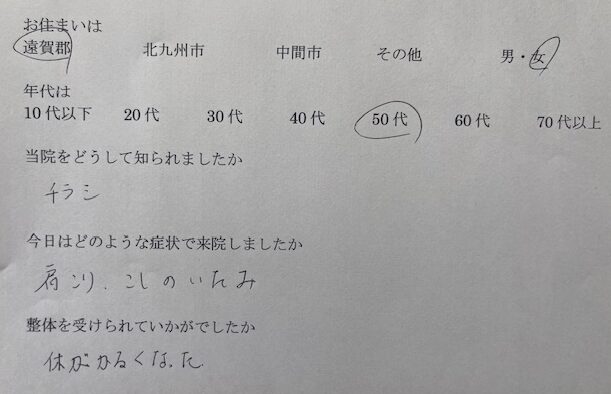 お住まいは
遠賀郡 北九州市 中間市 その他 男・女
年代は
10代以下 20代 30代 40代 50代 60代 70代以上
当院をどうして知られましたか
チラシ
今日はどのような症状で来院しましたか
肩こり、こしのいたみ
整体を受けられていかがでしたか
体がかるくなった